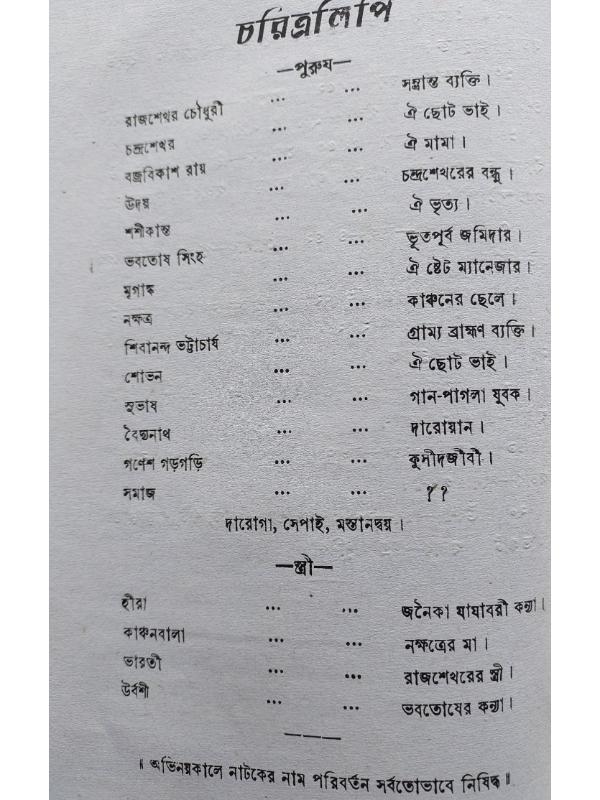 চরিত্রলিপি
—পুরুষ—
রাজশেখর চৌধুরী ... ... সম্ভ্রান্ত ব্যক্তি।
চন্দ্রশেখর ... ... ঐ ছোট ভাই।
বজ্রবিকাশ রায় ... ... ঐ মামা।
উদয় ... ... চন্দ্রশেখরের বন্ধু।
শশীকান্ত ... ... ঐ ভৃত্য।
ভবতোষ সিংহ ... ... ভূতপূর্ব জমিদার।
মৃগাঙ্ক ... ... ঐ ষ্টেট ম্যানেজার।
নক্ষত্র ... ... কাঞ্চনের ছেলে।
শিবানন্দ ভট্টাচার্য ... ... গ্রাম্য ব্রাহ্মণ ব্যক্তি।
শোভন ... ... ঐ ছোট ভাই।
সুভাষ ... ... গান-পাগলা যুবক।
বৈদ্যনাথ ... ... দারোয়ান।
গণেশ গড়গড়ি ... ... কুসীদজীবী।
সমাজ ... ... ??
দারোগা, সেপাই, মস্তানদ্বয়।
—স্ত্রী—
হীরা ... ... জনৈকা যাযাবরী কন্যা।
কাঞ্চনবালা ... ... নক্ষত্রের মা।
ভারতী ... ... রাজশেখরের স্ত্রী।
উর্বশী ... ... ভবতোষের কন্যা।
॥ অভিনয়কালে নাটকের নাম পরিবর্তন সর্বতোভাবে নিষিদ্ধ ॥